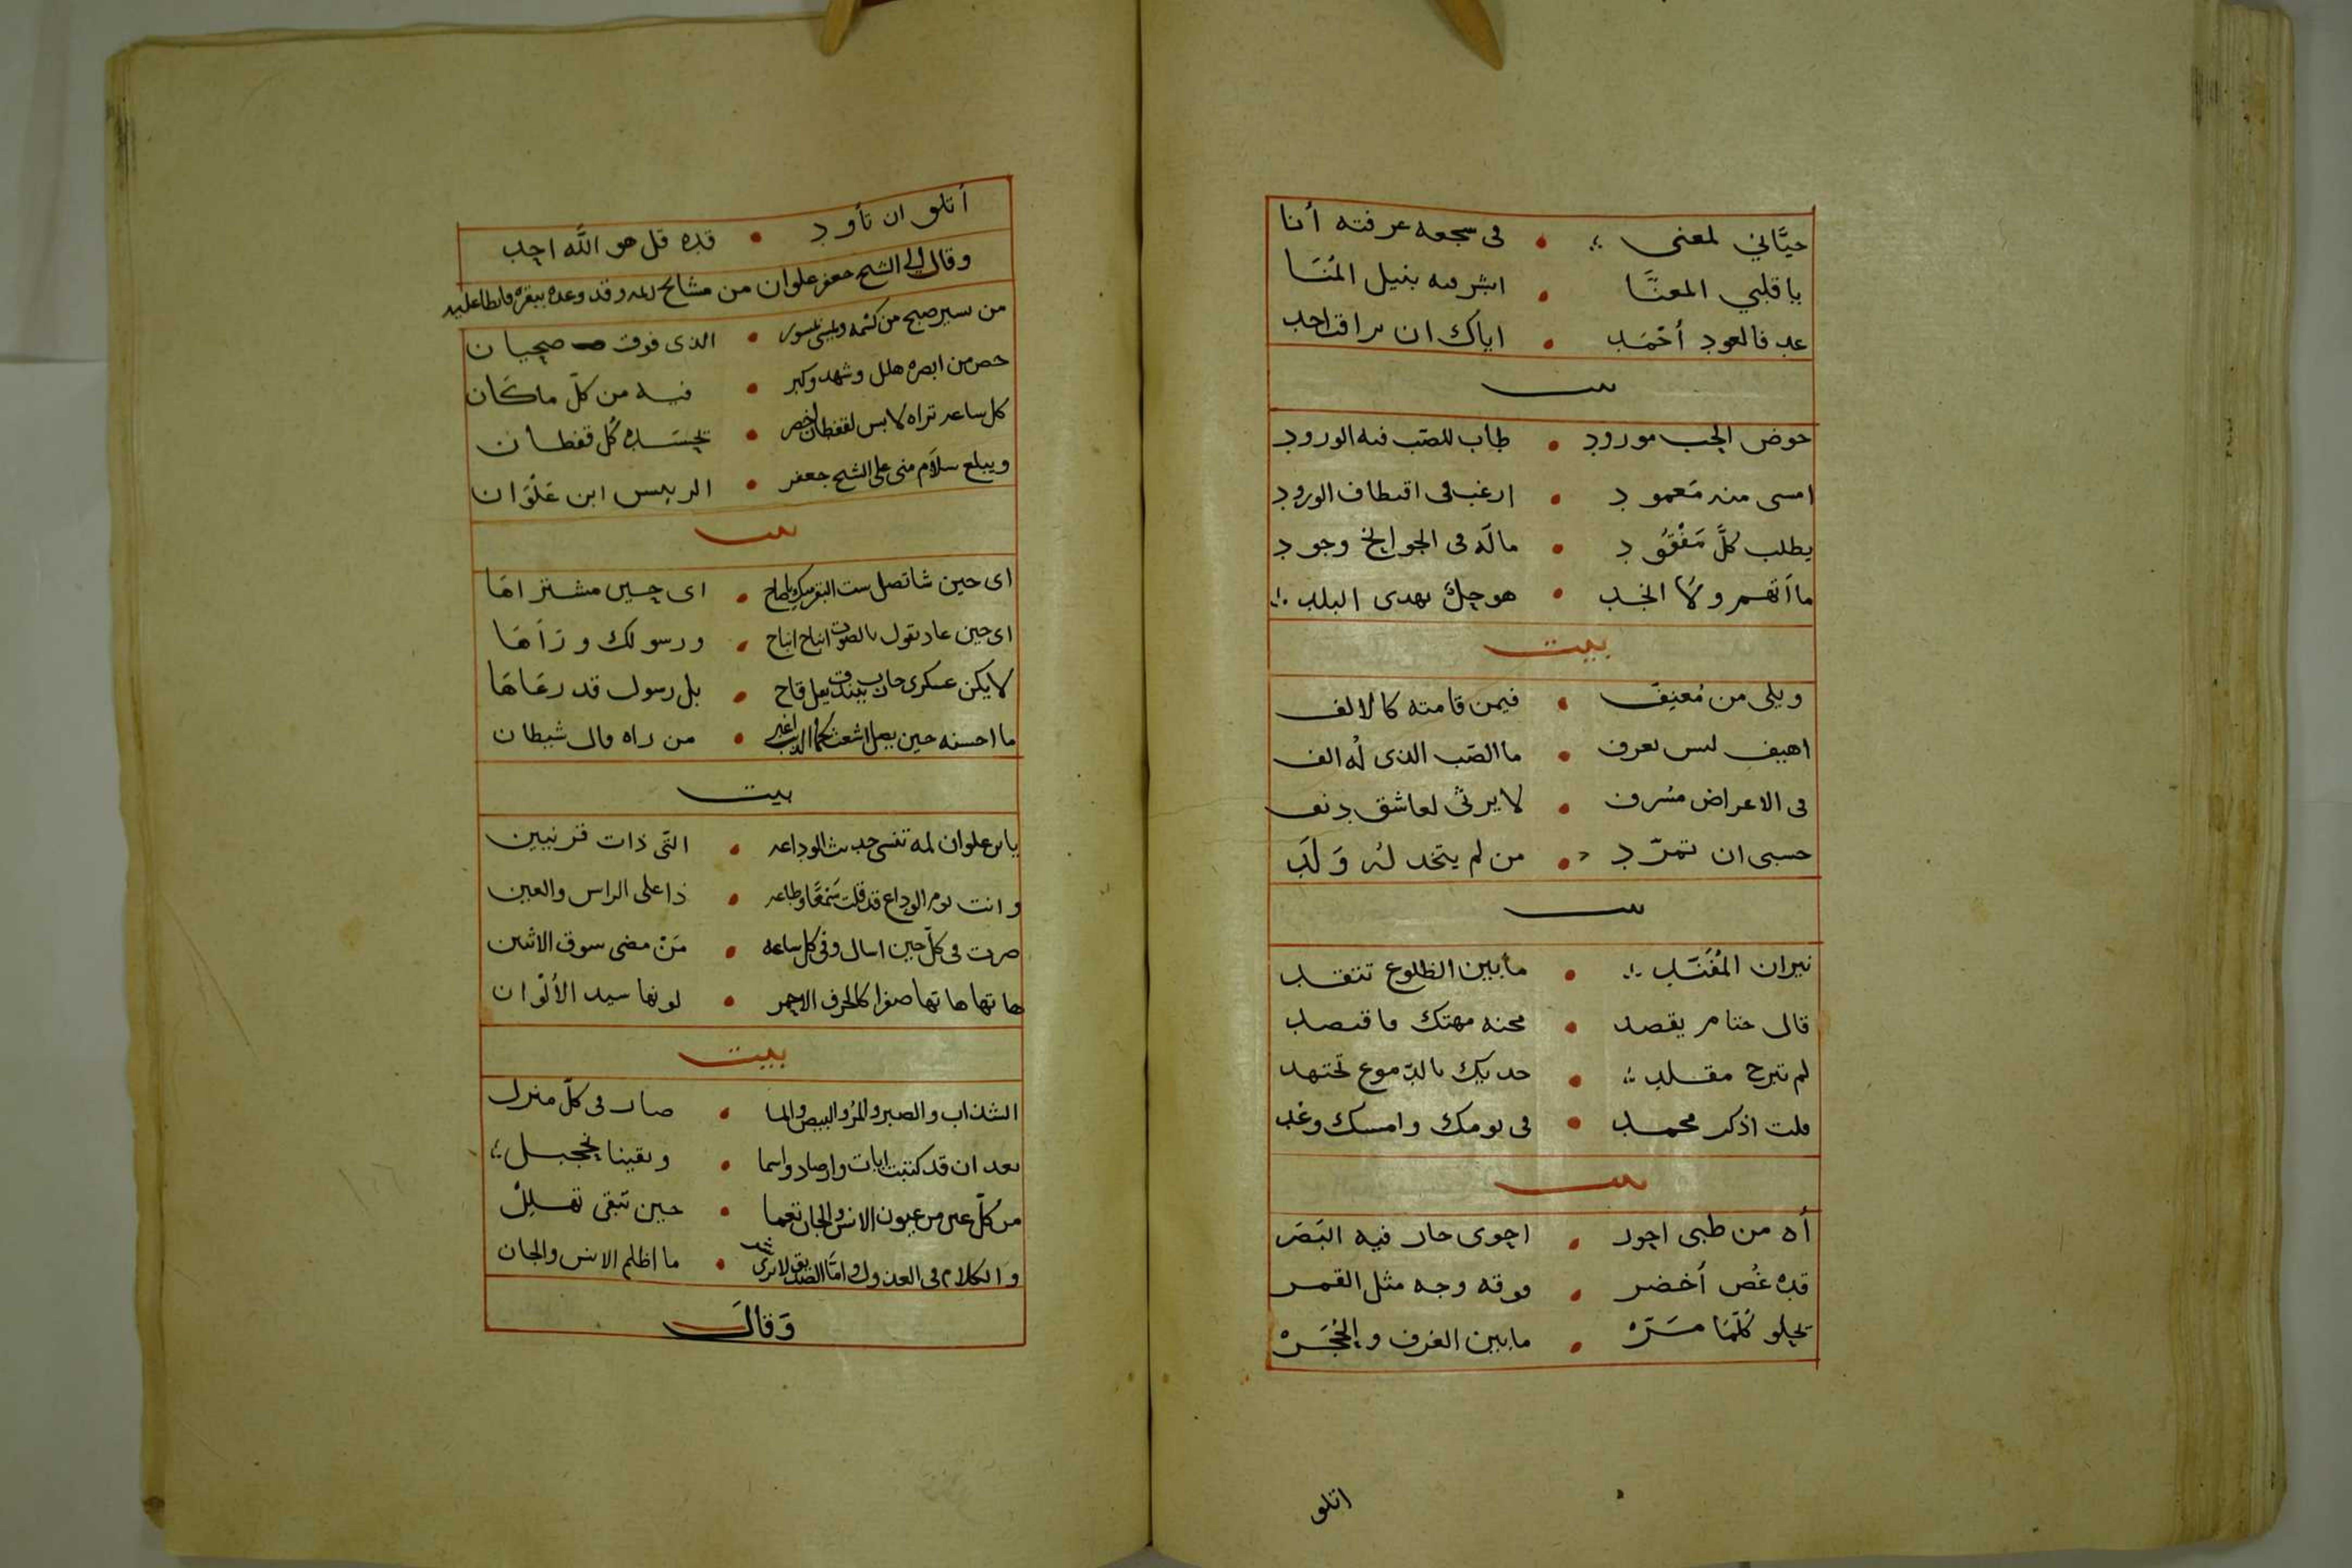 حيَّاني لمعنى • فى سجعه عرفته أنا
يا قلبي المعنَّا • ابشر منه بنيل المُنَا
عد فالعود أحْمَد • اياك ان تراقب احد
بيت
حوض الحب مورود • طاب للصّب فيه الورود
امسى منه مَعمود • ارغب فى اقتطاف الورود
يطلب كلَّ مَفْقُود • مالَه فى الجوانح وجود
ما أتهم ولا انجد • هو حِلٌّ بهدى البلد
بيت
ويلى من مُعنِف • فيمن قامته كالالف
اهيف ليس يعرف • ما الصّب الذى لُه الف
فى الاعراض مسرف • لا يرثى لعاشق دنف
حسبى ان تمرّد • من لم يتخد له وَلَد
بيت
نيران • مابين الظلوع تتقد
قال حتام يقصد • محنه مهتك فاقتصد
لم تبرح مقلد • حد بك بالدّموع تجتهد
قلت اذكر محمد • فى يومك وامسك وغد
بيت
أه من ظبى احور • احوى حار فيه البَصَر
قده غُصن أخضر • فوقه وجه مثل القمر
يجلو كُلّمَا مَرّ • مابين الغرف والحُجَرْ
اتلو
أتلو ان تأود • قده قل هو اللَّه احد
وقال الى الشيخ جعفر علوان من مشائخ ريمه وقد وعده ببقره فابطا عليه
من سير صبح من كسمه ويمسى • الذى فوق صحبان
حصن من ابصره هلل وشهد وكبر • فيه من كلّ ماكَان
كل ساعه تراه لابس لقفطان اخضر • يحسَده كُل قفطان
ويبلغ سلاَم منى على الشيخ جعفر • الرييس ابن عَلْوَان
بيت
اى حين شاتصل ست البقر • اى حين مشتراهَا
اى حين عاد تقول بالصوت انباح انباح • ورسولك ورَاهَا
لا يكن عسكرى جاب ببندق يصل قاح • بل رسول قد رعَاهَا
ما احسنه حين يصل اشعث كما الدب اغبر • من راه قال شيطان
بيت
يا بن علوان لمه تنسى حديث الوداعه • التّى ذات قرنيين
وانت يوم الوداع قد قلت سَمْعًا وطاعه • ذا على الراس والعين
صرت فى كلّ حين اسال وفى كل ساعه • مَنْ مضى سوق الاثنين
هاتها هاتها صفرا كالحرف الاحمر • لونها سيد الألْوَان
بيت
الشذاب والصبر والمرُ والبيض والما • صار فى كلّ منزل
بعد ان قد كتبت ايات وارصاد واسما • وبقينا نحجبل
من كلّ عين من عيون الانس والجان نعما • حين تبقى تقلبلْ
والكلام فى العدول واما الصديق لا • ما اظلم الانس والجان
وَقالَ